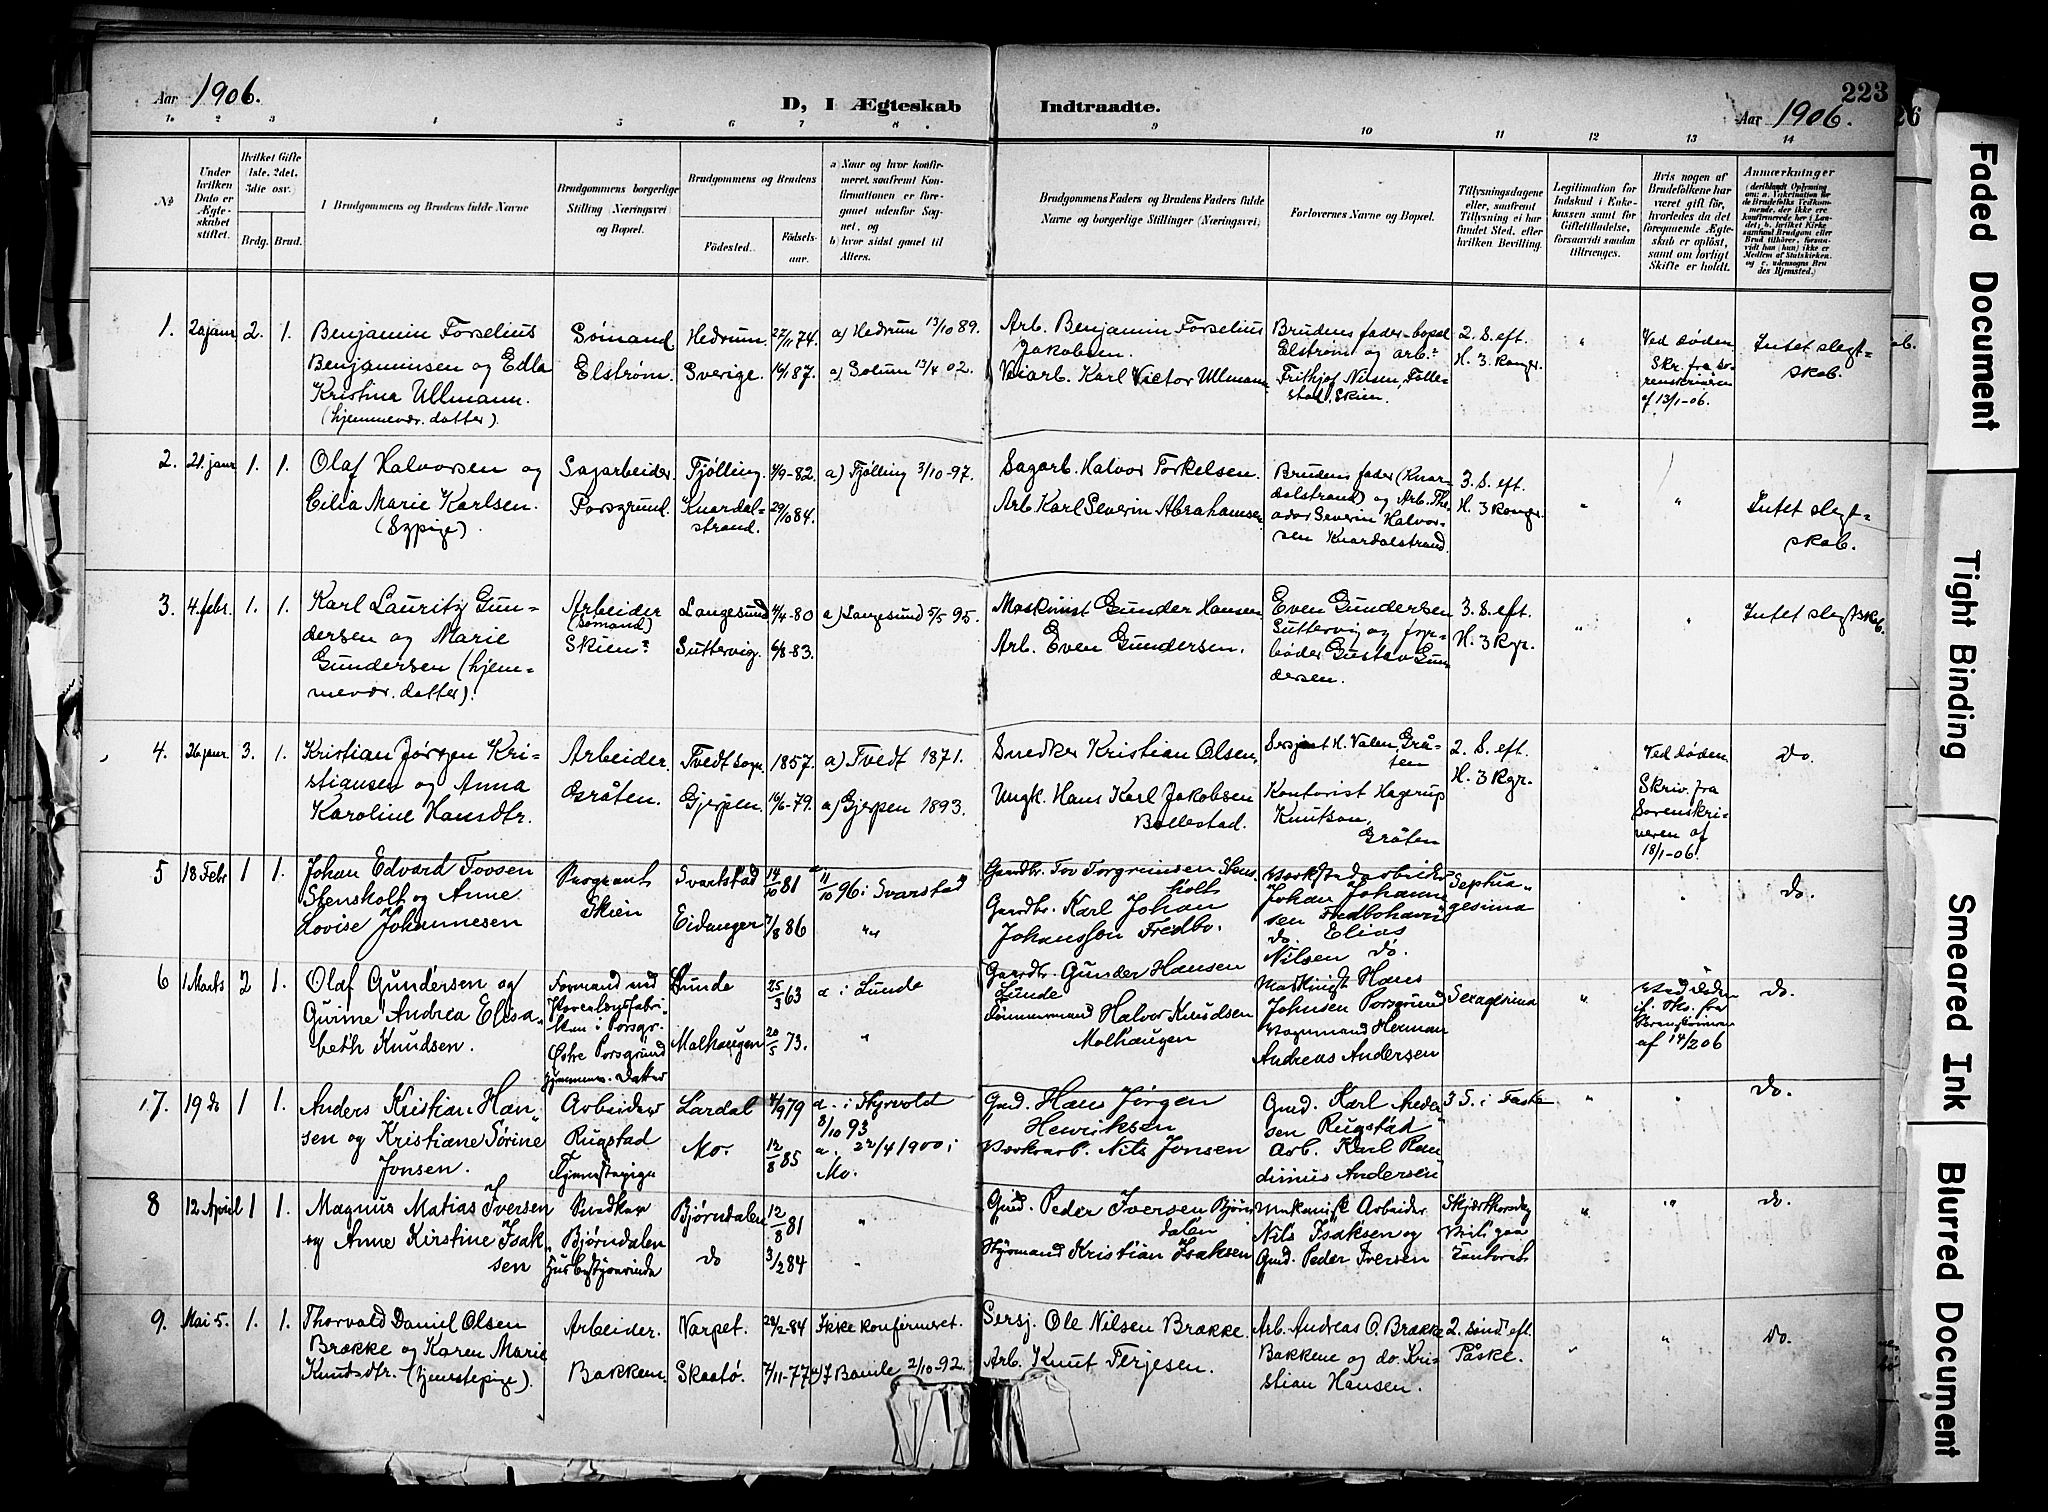 Aar 1906.
D, I Ægteskab Indtraadte.
Aar 1906.
223
26
1a 2 3 4 5 6 7 8 9 10 11 12 13 14
№
Under hvilken Dato er Ægteskabet stiftet.
Hvilket Gifte (1ste, 2det, 3die osv.)
Brdg. Brud.
Brudgommens og Brudens fulde Navne
Brudgommens borgerlige Stilling (Næringsvei) og Bopæl.
Brudgommens og Brudens
Fødested. Fødselsaar.
a) Naar og hvor konfirmeret, saafremt Konfirmationen er foregaaet udenfor Sognet, og
b) hvor sidst gaaet til Alters.
Brudgommens Faders og Brudens Faders fulde Navne og borgerlige Stillinger (Næringsvei)
Forlovernes Navne og Bopæl.
Tillysningsdagene eller, saafremt Tillysning ei har fundet Sted, efter hvilken Bevilling.
Legitimation for Indskud i Enkekassen samt for Giftetilladelse, forsaavidt saadan tiltrænges.
Hvis nogen af Brudefolkene har været gift før, hvorledes da det foregaaende Ægteskab er opløst, samt om lovligt Skifte er holdt.
Anmærkninger
1. 20 januar 2. 1.
Benjamin Forselius
Benjaminsen og Edla
Kristina Ullmann.
(hjemmevær. datter).
Sømand.
Elstrøm.
Hedrum. 27/11 74.
Sverige. 16/1 87.
a) Hedrum 13/10 89.
a) Solum 13/4 02.
Arb. Benjamin Forselius
Jakobsen.
Veiarb. Karl Victor Ullmann.
Brudens fader - bopæl
Elstrøm og arb.
Frithjof Nilsen, Følle-
stad, Skien.
2. S. eft.
H. 3 Konger
"
Ved døden
Skr. fra So-
renskriveren
af 13/1-06.
Intet slegt-
skab.
2. 21 januar 1. 1.
Olaf Halvorsen og
Cilia Marie Karlsen.
(Sypige).
Sagarbeider.
Porsgrund.
Tjølling. 4/9-82.
Knardal-
strand. 29/10 84.
a) Tjølling 3/10-97.
Sagarb. Halvor Torkelsen.
Arb. Karl Severin Abrahamsen
Brudens fader (Knar-
dalstrand) og Arb. The-
odor Severin Halvor-
sen Knardalstrand.
3. S. eft.
H. 3 Konger
" "
Intet slegt-
skab.
3. 4. febr. 1. 1.
Karl Lauritz Gun-
dersen og Marie
Gundersen (hjem-
mevær. datter).
Arbeider
(Sømand)
Skien.
Langesund 4/4-80
Suttervig. 6/8-83.
a) Langesund 5/5 95.
Maskinist Gunder Hansen
Arb. Even Gundersen.
Even Gundersen
Suttervig og fyr-
bøder Gustav Gun
dersen.
3. S. eft.
H. 3 Kgr.
" "
Intet slegtskab.
4. 26 januar 3. 1.
Kristian Jørgen Kri-
stiansen og Anna
Karoline Hansdtr.
Arbeider.
Gråten.
Tvedt sogn. 1857.
Gjerpen. 16/6-79.
a) Tvedt 1871.
a) Gjerpen 1893.
Snedker Kristian Olsen.
Ungk. Hans Karl Jakobsen
Bollestad.
Sersjant H. Valen, Grå-
ten
Kontorist Hagerup
Knutson,
Gråten
2. S. eft.
H. 3 Kgr.
Ved døden.
Skriv. fra
Sorenskri-
veren af
18/1-06.
do.
5 18 Febr 1 1.
Johan Edvard Tovsen
Stensholt og Anne
Lovise Johannesen
Sergeant
Skien
Svartstad 14/10 81
Eidanger 7/8 86
11/10 96 i Svarstad
"
Gaardbr. Tov Torgrimsen Stens
holt
Gaardbr. Karl Johan
Johansson Fredbo.
Verkstedarbeider
Johan Johann
sen Fredbohavn
do. Elias
Nilsen do.
Septua-
gesima
"
do.
6 1 Marts 2 1.
Olaf Gundersen og
Gurine Andrea Elisa-
beth Knudsen.
Formand ved
i Porsgr.
Østre Porsgrund
hjemmev. Datter
Lunde 25/3 63
Malhaugen 20/5 73.
a i Lunde
"
Gaardbr. Gunder Hansen
Lunde
Tømmermand Halvor Knudsen
Malhaugen
Maskinist Hans
Johnsen Porsgrund
Vognmand Herman
Andreas Andersen
Sexagesima
"
Ved Døden
fra
Sorenskriveren
af 14/2 06
do.
7. 19 do 1 1.
Anders Kristian Han-
sen og Kristiane Sørine
Jonsen.
Arbeider
Rugstad
Tjenestepige
Lardal 4/9 79
Mo. 12/8 85
8/10 93
a. 22/4 1900 i
Mo.
Gmd. Hans Jørgen
Henriksen
Verksarb. Nils Jonsen
Gmd. Karl Ander
sen Rugstad
Arb. Karl Ran
dinius Andersen
3 S. i Faste
do.
8 12 April 1 1.
Magnus Matias Iversen
og Anne Kirstine Isak
sen
Snedker
Bjørndalen
Husbestyrerinde
Bjørndalen 12/8 81
do 3/2 84
"
"
Gmd. Peder Iversen Bjørn
dalen
Styrmand Kristian Isaksen
Mekanisk Arbeider
Nils Isaksen og
Gmd. Peder Iversen
Skjærthorsdag
" "
do.
9. Mai 5. 1. 1.
Thorvald Daniel Olsen
Brække og Karen Marie
Knudsdtr. (tjenestepige).
Arbeider.
Bakken.
Varpet. 28/2-84
Skaatø. 7/11-77
Ikke konfirmeret.
a) I Bamle 2/10-92.
Sersj. Ole Nilsen Brække.
Arb. Knut Terjesen.
Arb. Andreas O. Brække
Bakkene og do. Kri-
stian Hansen.
2. Sønd. eft.
Påske.
" "
do.
Faded Document
Tight Binding
Smeared Ink
Blurred Document